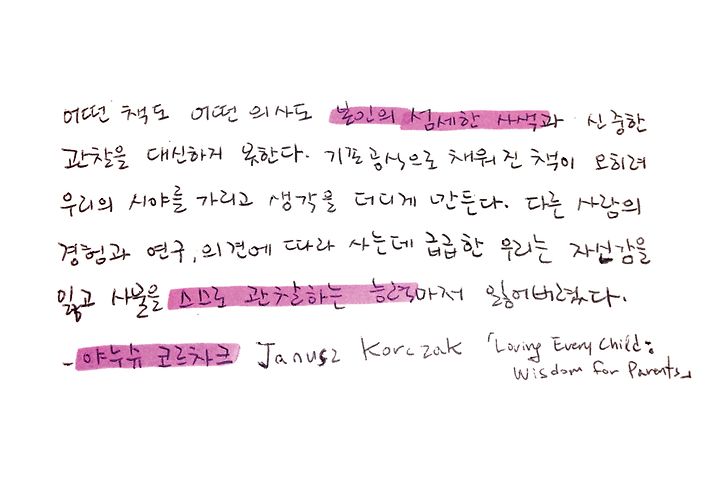 어떤 책도 어떤 의사도 본인의 섬세한 사색과 신중한
관찰을 대신하지 못한다. 기존 공식으로 채워진 책이 오히려
우리의 시야를 가리고 생각을 더디게 만든다. 다른 사람의
경험과 연구, 의견에 따라 사는데 급급한 우리는 자신감을
잃고 사물을 스스로 관찰하는 능력마저 잃어버렸다.
- 야누슈 코르차크 Janusz Korczak 「Loving Every Child:
Wisdom for Parents」